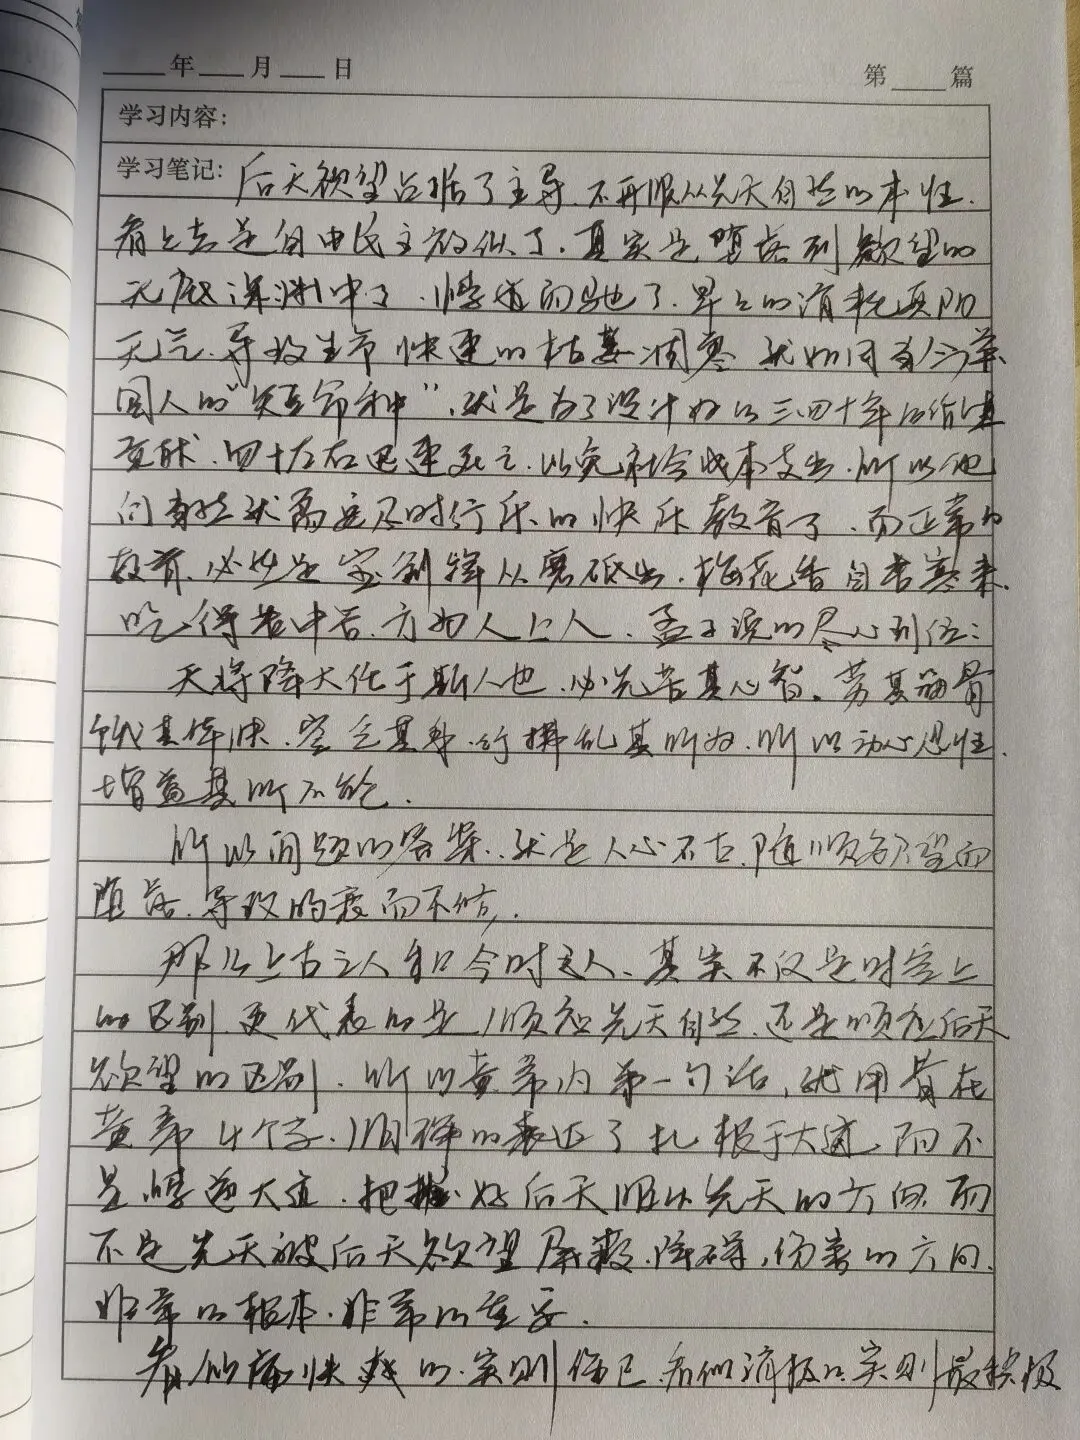 ____年___月___日 第____篇
学习内容:
学习笔记: 后天欲望占据了主导、不再服从先天自然的本性、
看上去是自由民主放纵了、其实是堕落到欲望的
无底深渊中了、悖道而驰了、早早的消耗真阳
元气、导致生命快速的枯萎凋零 就如同有人说美
国人的“短命种”、就是为了设计好的三四十年的价值
贡献、四十左右迅速死亡、以免社会成本支出、所以他
们自然就需要及时行乐的快乐教育了、而正常的
教育、必然是宝剑锋从磨砺出、梅花香自苦寒来、
吃得苦中苦、方为人上人、孟子说的尽心到位:
天将降大任于斯人也、必先苦其心智、劳其筋骨
饿其体肤、空乏其身、行拂乱其所为、所以动心忍性、
增益其所不能、
所以问题的答案、就是人心不古、随顺欲望而
堕落、导致的衰而不修、
那么上古之人和今时之人、其实不仅是时空上
的区别、更代表的是顺应先天自然、还是顺应后天
欲望的区别、所以黄帝内第一句话、就用昔在
黄帝4个字、明确的表达了扎根于大道、而不
是悖逆大道、把握好后天服从先天的方向、而
不是先天被后天欲望屏蔽、障碍、伤害的方向、
非常的根本、非常的重要、
看似痛快爽的、实则伤己、看似消极的、实则最积极